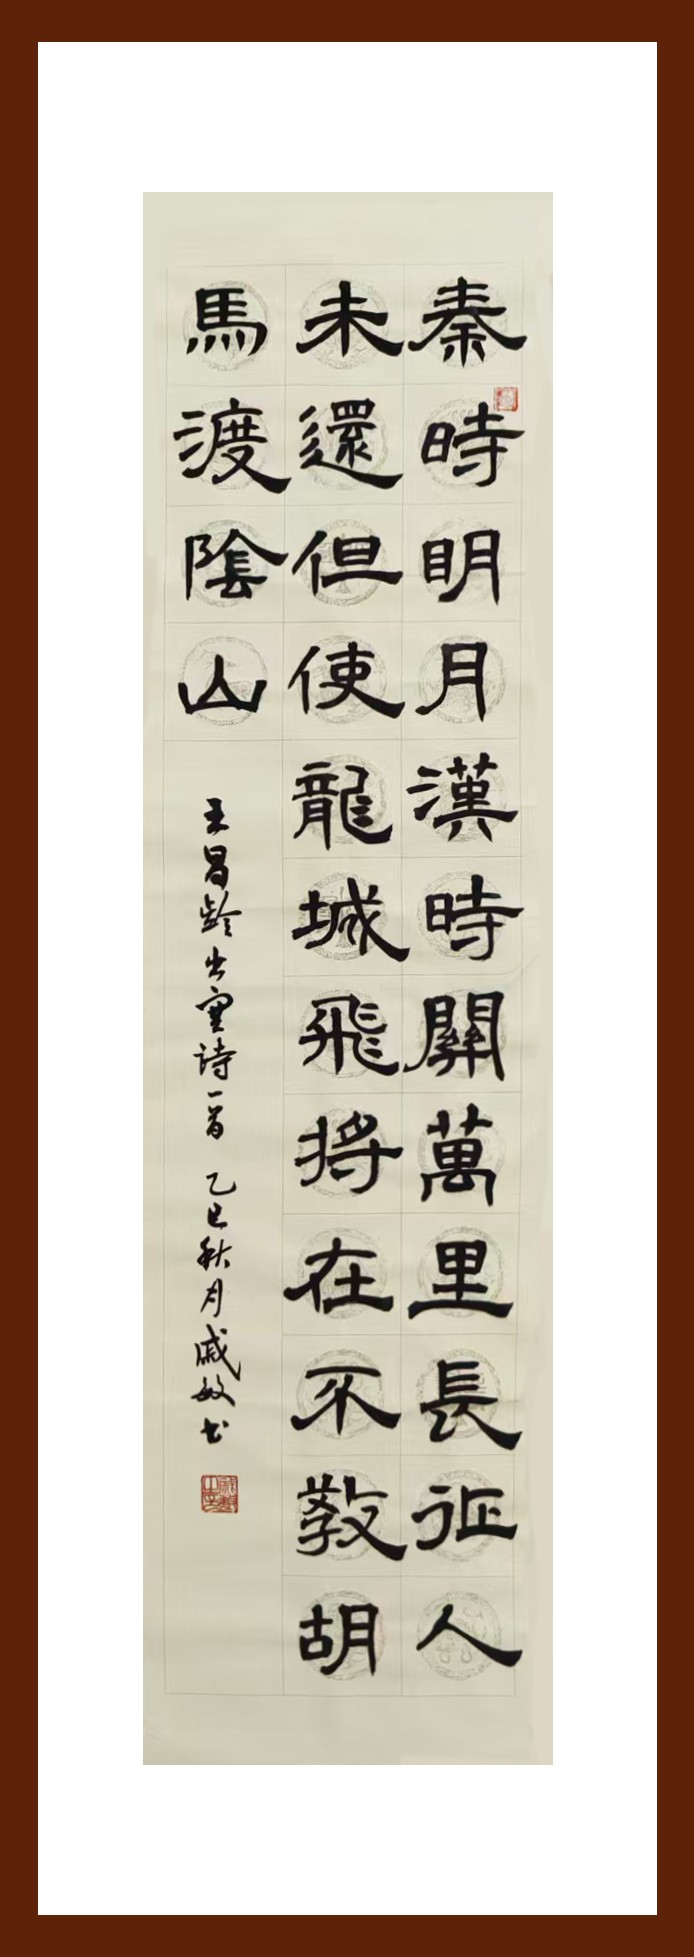 秦時明月漢時關萬里長征人
未還但使龍城飛將在不敎胡
馬渡陰山
王昌齡出塞詩一首 乙巳秋月戚敏书